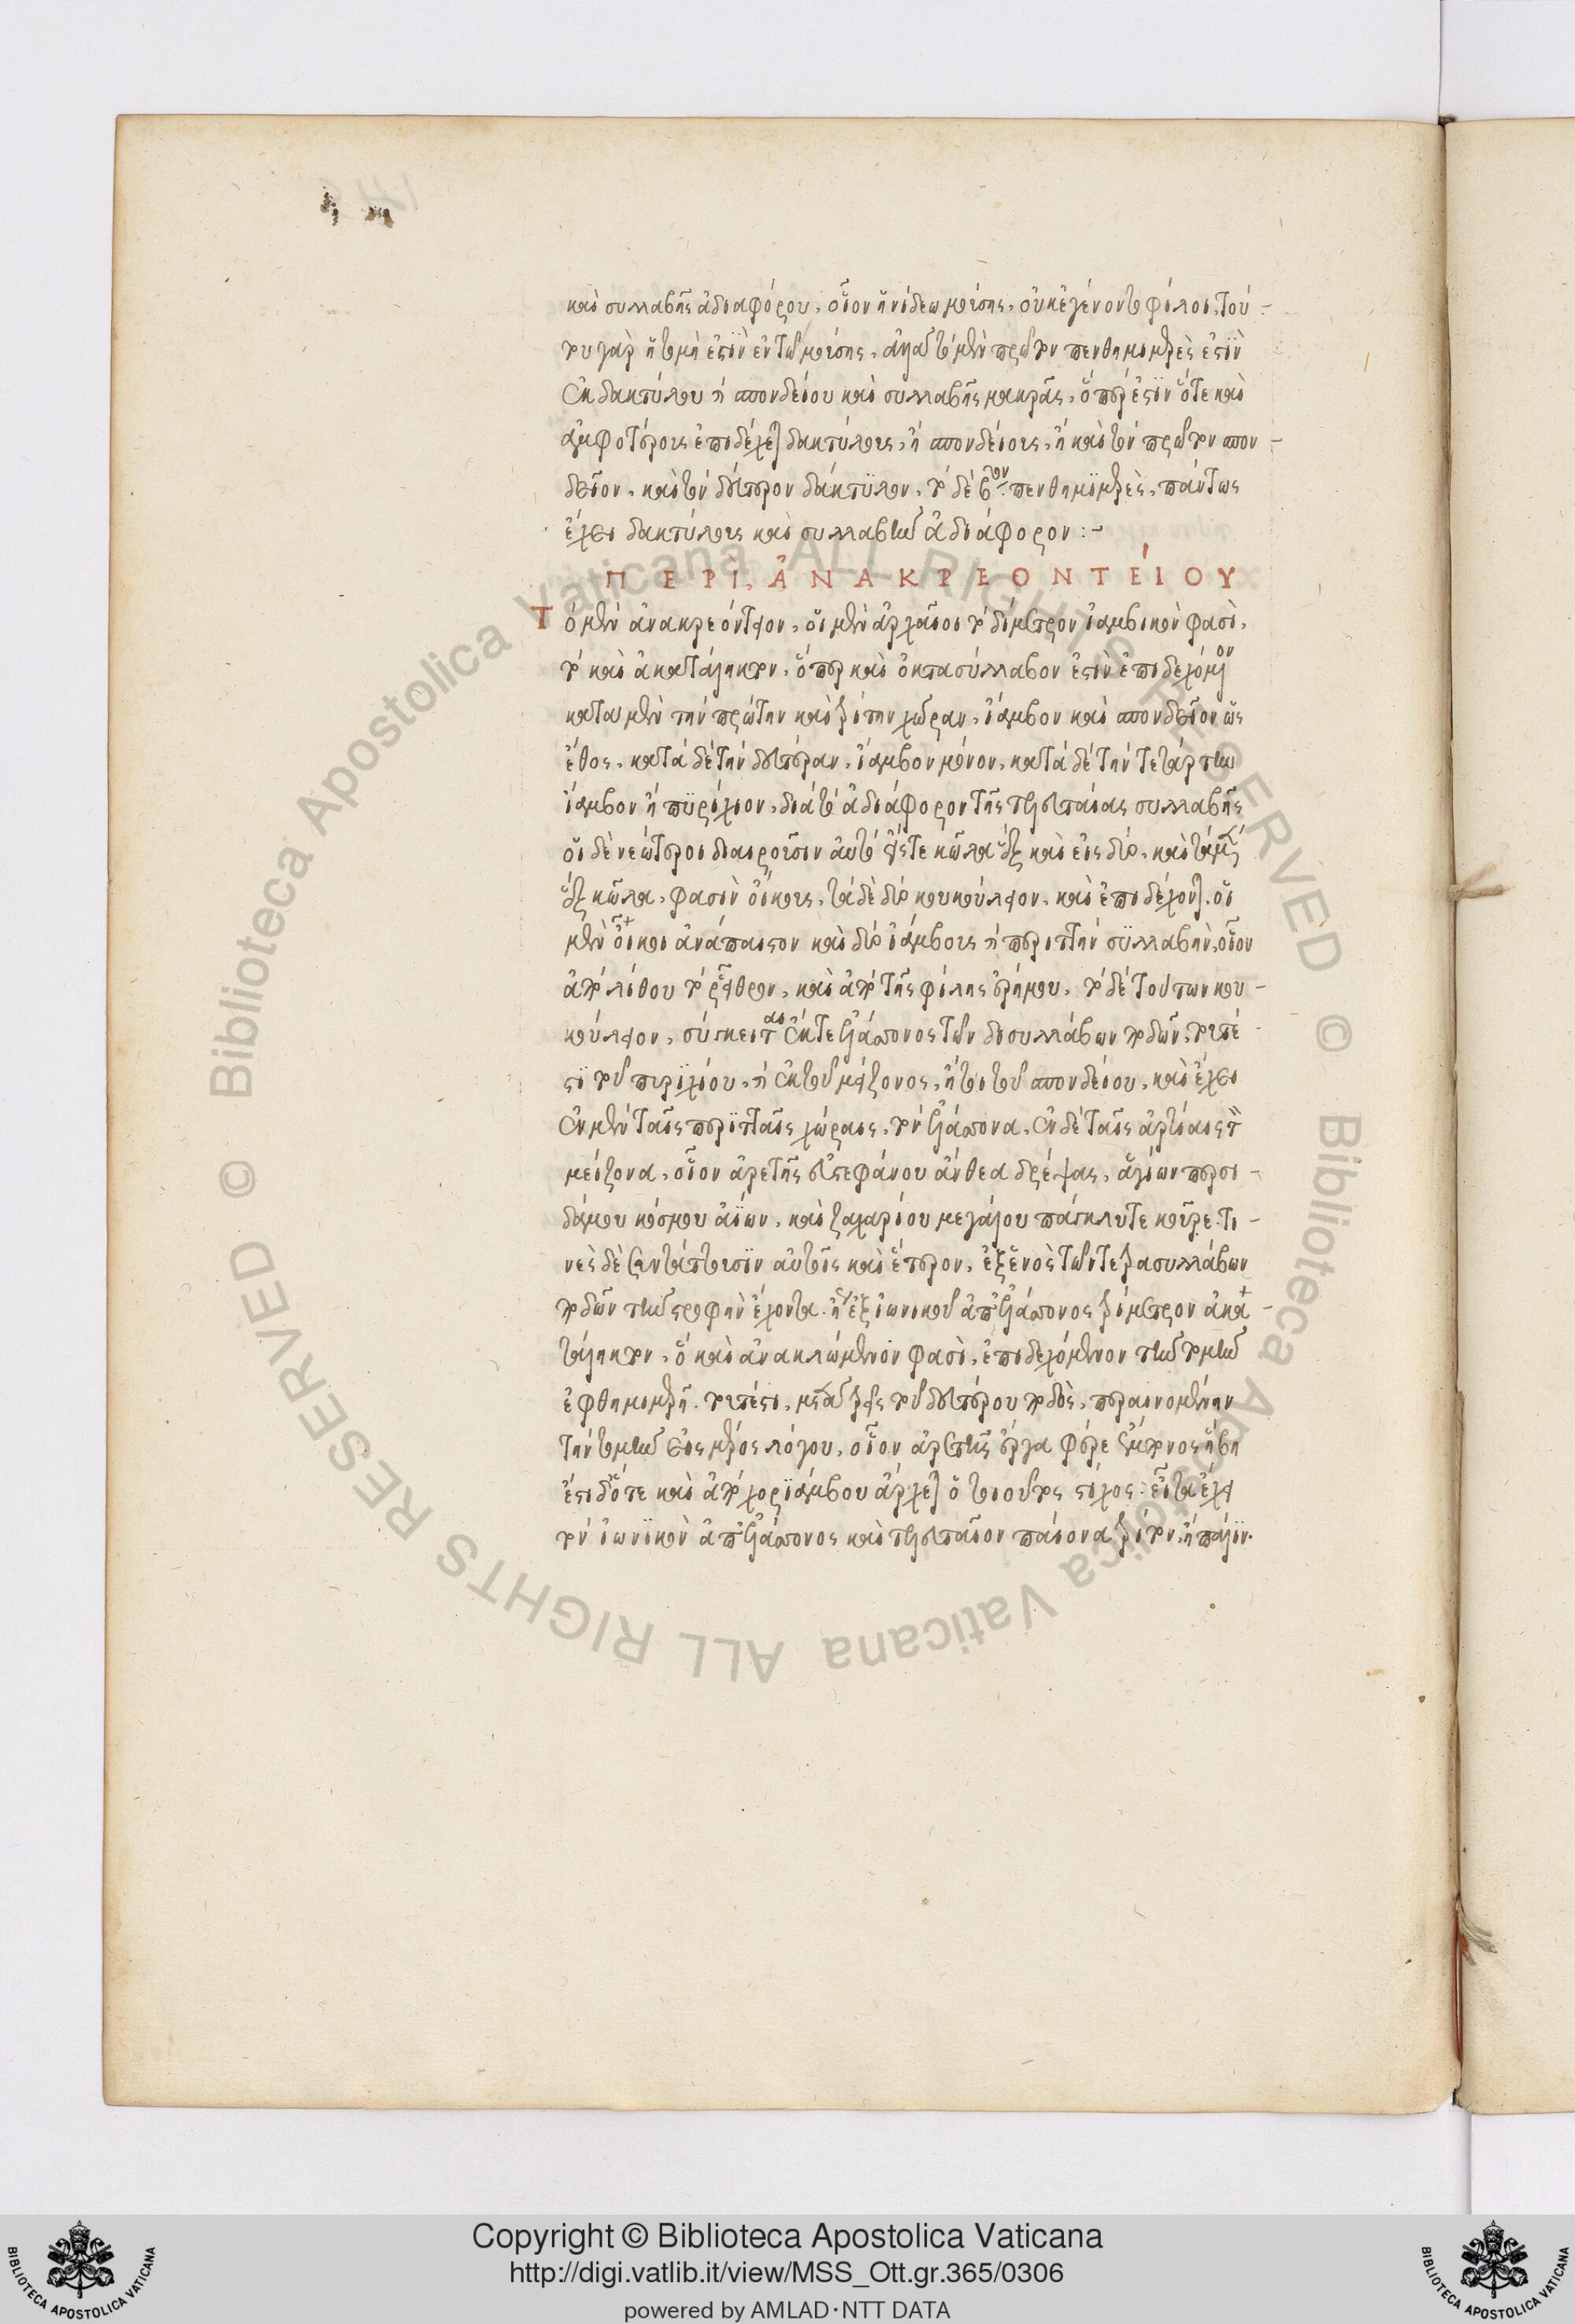 καὶ συλλαβῆς ἀδιαφόρου, οἷον ἠνίδε μούσης, οὐκ ἐγένοντο φίλοι, τού-
του γὰρ ἡ τομὴ ἐστὶν ἐν τῷ μούσης, ἀλλὰ τὸ μὲν πρῶτον πενθημιμερὲς ἐστὶν
ἐκ δακτύλου ἢ σπονδείου καὶ συλλαβῆς μακρᾶς, ὅπερ ἐστὶν ὅτε καὶ
ἀμφοτέρους ἐπιδέχεται δακτύλους, ἢ σπονδείους, ἢ καὶ τὸν πρῶτον σπον-
δεῖον, καὶ τὸν δεύτερον δάκτυλον, τὸ δὲ βον πενθημιμερὲς, πάντως
ἔχει δακτύλους καὶ συλλαβὴν ἀδιάφορον :-
ΠΕΡΙ ἈΝΑΚΡΕΟΝΤΕΊΟΥ
Τὸ μὲν ἀνακρεόντειον, οἱ μὲν ἀρχαῖοι τὸ δίμετρον ἰαμβικὸν φασὶ,
τὸ καὶ ἀκατάληκτον, ὅπερ καὶ ὀκτασύλλαβον ἐστὶν ἐπιδεχόμενον
κατὰ μὲν τὴν πρώτην καὶ τρίτην χώραν, ἴαμβον καὶ σπονδεῖον ὡς
ἔθος, κατὰ δὲ τὴν δευτέραν, ἴαμβον μόνον, κατὰ δὲ τὴν τετάρτην
ἴαμβον ἢ πυρίχιον, διὰ τὸ ἀδιάφορον τῆς τελευταίας συλλαβῆς
οἱ δὲ νεώτεροι διαιροῦσιν αὐτὸ εἴς τε κῶλα ἓξ καὶ εἰς δύο, καὶ τὰ μὲν
ἓξ κῶλα, φασὶν οἴκους, τὰ δὲ δύο κουκούλειον, καὶ ἐπιδέχονται, οἱ
μὲν οἶκοι ἀνάπαιστον καὶ δύο ἰάμβους ἢ περιττὴν συλλαβὴν, οἷον
ἀπὸ λίθου τὸ ῥεῖθρον, καὶ ἀπὸ τῆς φίλης ἐρήμου, τὸ δὲ τούτων κου-
κούλειον, σύγκειται ἔκ τε ἐλάττονος τῶν δισυλλάβων ποδῶν, τουτέ
στι τοῦ πυριχίου, ἢ ἐκ τοῦ μείζονος, ἤτοι τοῦ σπονδείου, καὶ ἔχει
ἐν μὲν ταῖς περιτταῖς χώραις, τὸν ἐλάττονα, ἐν δὲ ταῖς ἀρτίαις τὸν
μείζονα, οἷον ἀρετῆς στεφάνου ἄνθεα δρέψας, ἁγίων περσι-
δάμου κόσμου ἀΐων, καὶ ζαχαρίου μεγάλου πάγκλυτε κοῦρε. τι-
νὲς δὲ ξυντάττουσιν αὐτοῖς καὶ ἕτερον, ἐξ ἑνὸς τῶν τετρασυλλάβων
ποδῶν τὴν στροφὴν ἔχοντα. ἢ ἐξ ἰωνικοῦ ἀπ' ἐλάττονος τρίμετρον ἀκα-
τάληκτον, ὃ καὶ ἀνακλώμενον φασὶ, ἐπιδεχόμενον τὴν τομὴν
ἐφθημιμερῆ. τουτέστι, μετὰ τρεῖς τοῦ δευτέρου ποδὸς, περαινομένην
τὴν τομὴν εἰς μέρος λόγου, οἷον ἀρετῆς ἔργα φέρε ἔμπνοος ἥβη
ἔσθ' ὅτε καὶ ἀπὸ χοριάμβου ἄρχεται ὁ τοιοῦτος στίχος. εἶτα ἔχει
τὸν ἰωνικὸν ἀπ' ἐλάττονος καὶ τελευταῖον παίονα τρίτον, ἢ πάλιν.
Copyright © Biblioteca Apostolica Vaticana
http://digi.vatlib.it/view/MSS_Ott.gr.365/0306
powered by AMLAD·NTT DATA
BIBLIOTECA APOSTOLICA VATICANA
BIBLIOTECA APOSTOLICA VATICANA
© Biblioteca Apostolica Vaticana ALL RIGHTS RESERVED © Biblioteca Apostolica Vaticana ALL RIGHTS RESERVED